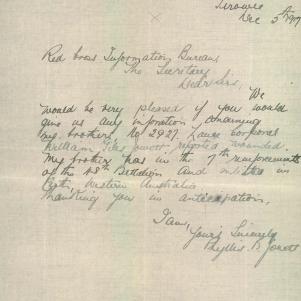 Terowie
Dec 5th 1917
Red Cross Information Bureau
The Secretary
Dear Sir,
We
would be very pleased if you would
give us any information concerning
my brother, No 2927. Lance Corporal
William Giles Jowett, reported wounded.
My brother was in the 7th reinforcements
of the 48th Battalion and enlisted in
Perth Western Australia
Thanking you in anticipation,
I am,
Yours Sincerely
Phyllis B. Jowett